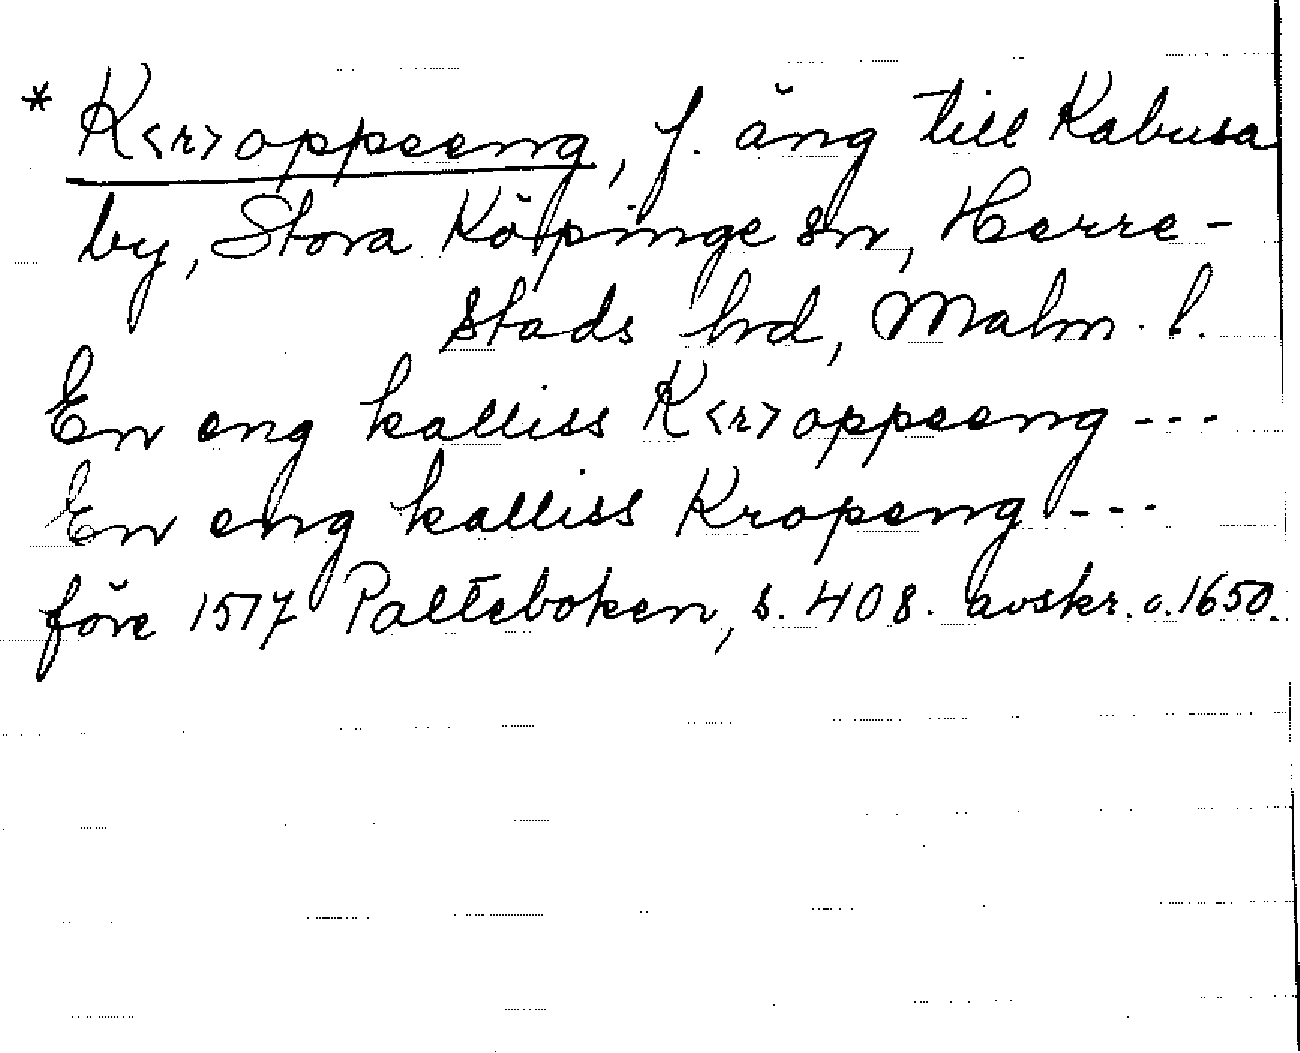 * K<r>oppeeng, f. äng till Kabusa
by, Stora Köpinge sn, Herre-
stads hd, Malm. l.
En eng kalliss K<r>oppeeng ---
En eng kalliss Kropeng ---
före 1517 Palteboken, s. 408. avskr. c. 1650.